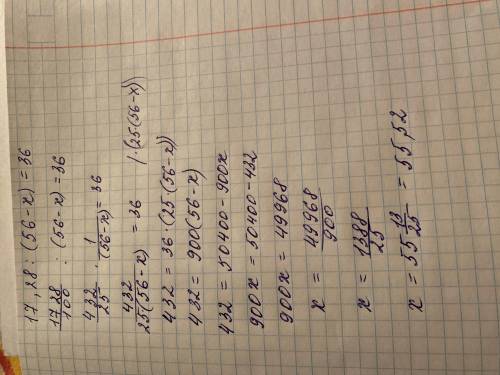 17,28 : (56-x) = 36
1728/100 : (56-x) = 36
432/25 · 1/(56-x) = 36
432/25(56-x) = 36 | ·(25(56-x))
432 = 36·(25(56-x))
432 = 900(56-x)
432 = 50400-900x
900x = 50400-432
900x = 49968
x = 49968/900
x = 1388/25
x = 55 13/25 = 55,52